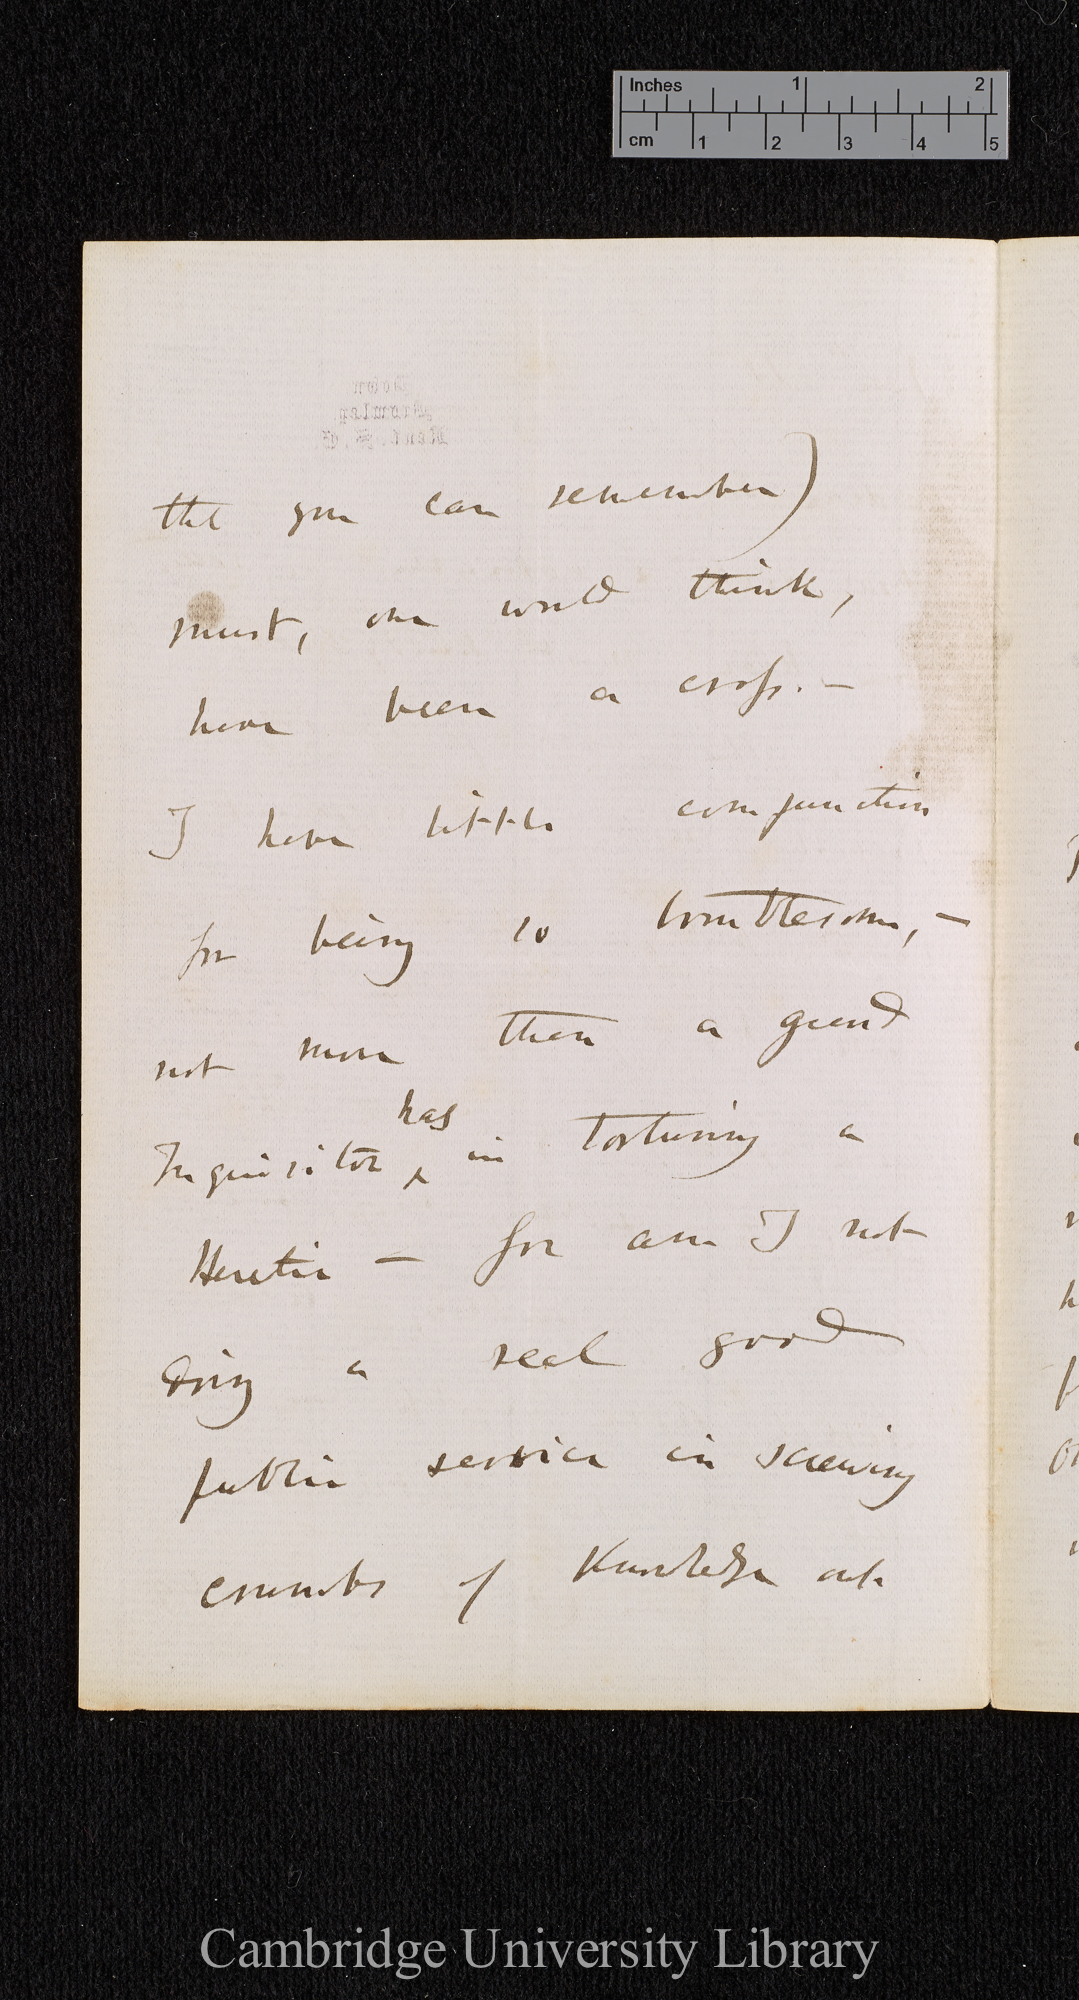 Inches 1 2
cm 1 2 3 4 5
Down
Bromley
Kent. S.E.
that you can remember)
must, one would think,
have been a cross. —
I have little compunction
for being so troublesome, —
not more than a grand
has
Inquisitor ^ in torturing a
Heretic — for am I not
doing a real good
public service in screwing
crumbs of knowledge out
Cambridge University Library